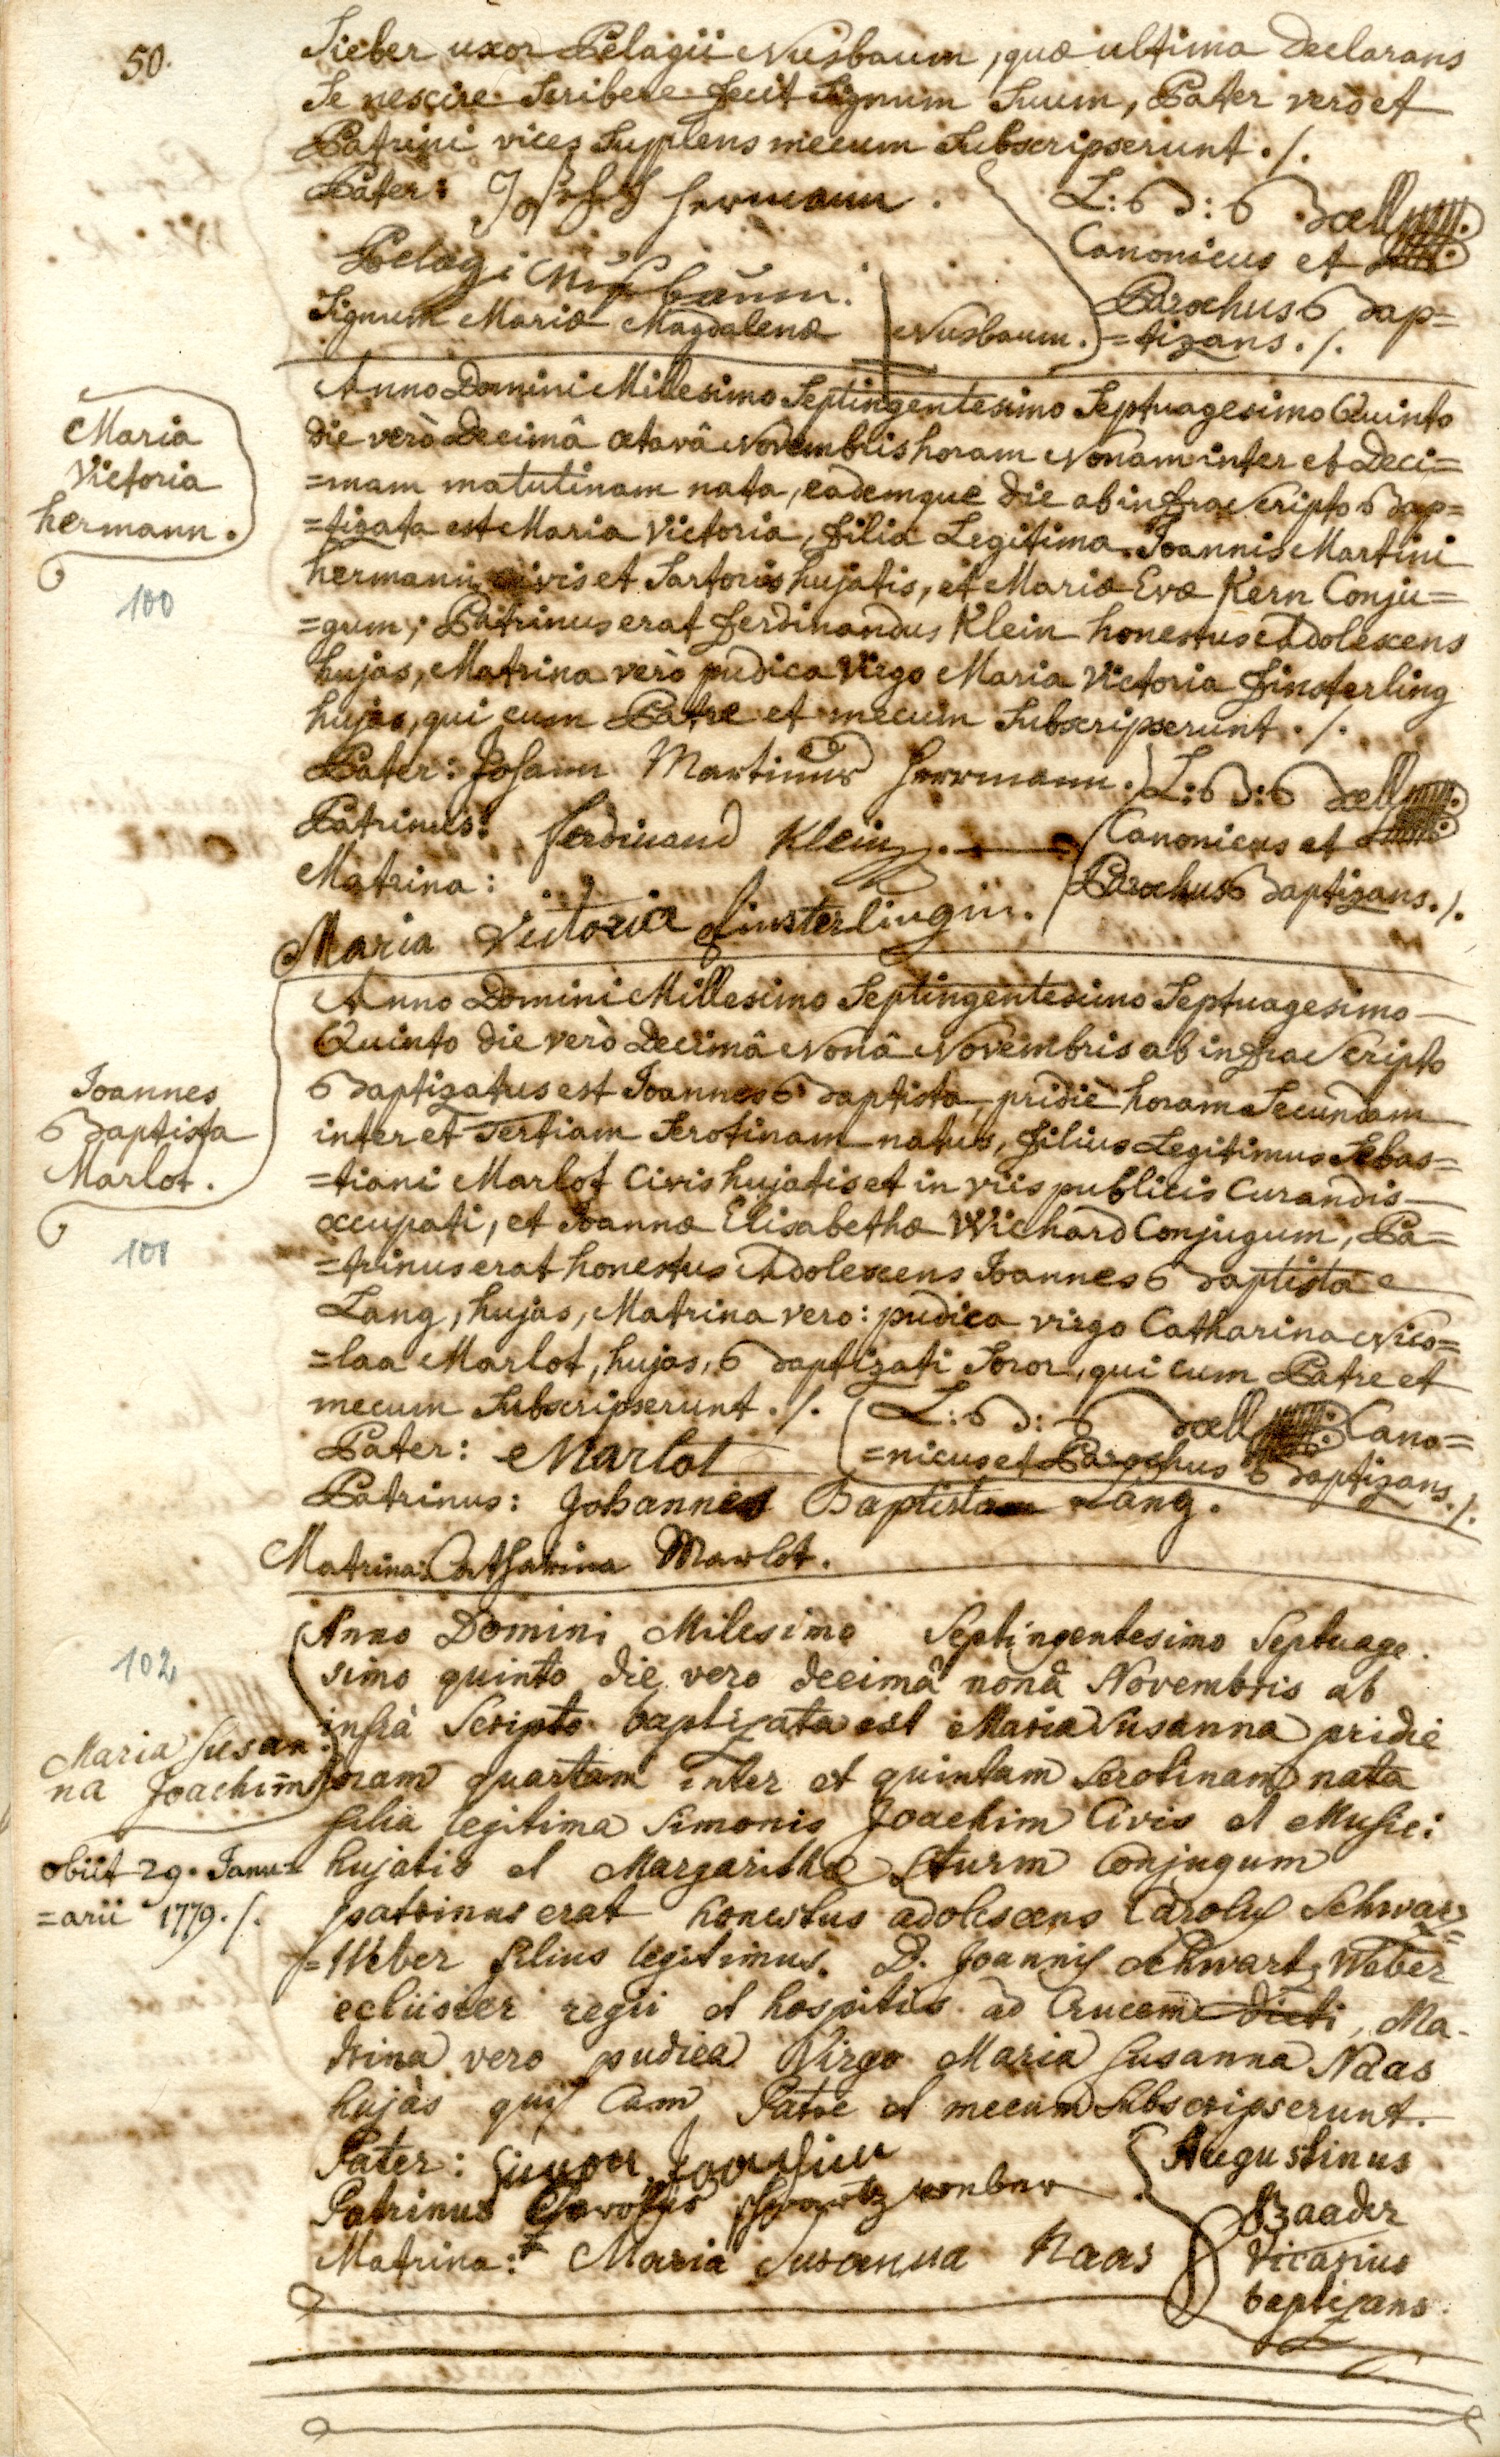 50.
Sieber uxor Pelagii Nusbaum, quæ ultima declarans
Se nescire Scribere fecit Signum Suum, Pater verò et
Patrini vices Supplens mecum Subscripserunt ./.
Pater: Joseph herrmann.
L: B: Bœll
Canonicus et
Parochus Bap=
=tizans ./.
Pelagi Nusbaum.
Signum Mariæ Magdalenæ Nusbaum.
Maria
Victoria
hermann.
100
Anno Domini Millesimo Septingentesimo Septuagesimo Quinto
die verò Decimâ octavâ Novembris horam Nonam inter et Deci=
=mam matutinam nata, eademque die ab infrascripto Bap=
=tizata est Maria Victoria, filia Legitima Joannis Martini
hermann civis et Sartoris hujatis, et Mariæ Evæ Kern Conju=
=gum; Patrinus erat ferdinandus Klein honestus adolescens
hujas, Matrina verò pudica Virgo Maria Victoria finsterling
hujas, qui cum Patre et mecum Subscripserunt ./.
Pater: Johann Martinus herrmann.
L: B: Bœll
Canonicus et
Parochus Baptizans ./.
Patrinus: ferdinand Klein.
Matrina:
Maria Victoria finsterlingin.
Joannes
Baptista
Marlot.
101
Anno Domini Millesimo Septingentesimo Septuagesimo
Quinto die verò Decimâ Nonâ Novembris ab infrascripto
Baptizatus est Joannes Baptista, pridiè horam Secundam
inter et Tertiam Serotinam natus, filius Legitimus Sebas=
=tiani Marlot Civis hujatis et in viis publicis Curandis
occupati, et Joannæ Elisabethæ Wichard Conjugum, Pa=
=trinus erat honestus Adolescens Joannes Baptista
Lang, hujas, Matrina vero: pudica virgo Catharina Nico=
=laa Marlot, hujas, Baptizati Soror, qui cum Patre et
mecum Subscripserunt ./.
L: B: Bœll Cano=
=nicus et Parochus Baptizans ./.
Pater: Marlot
Patrinus: Johannes Baptista Lang.
Matrina: Catharina Marlot.
102
Maria Susan
na Joachim
obiit 29. Janu=
=arii 1779 ./.
Anno Domini Milesimo Septingentesimo Septuage
simo quinto die vero decimâ nonâ Novembris ab
infrà Scripto baptizata est Maria Susanna pridie
horam quartam inter et quintam Serotinam nata
filia legitima Simonis Joachim Civis et Musici
hujatis et Margarithæ Sturm Conjugum
patrinus erat honestus adolescens Carolus Schwarz=
=Weber filius legitimus D. Joannis Schwartz Weber
eclusier regii et hospitis ad Crucem dicti, Ma-
trina vero pudica Virgo Maria Susanna Naas
hujas qui Cum Patre et mecum Subscripserunt.
Pater: Simon Joachim
Patrinus Carolus schwartz weber
Matrina: Maria Susanna Naas
Augustinus
Baader
vicarius
baptizans.